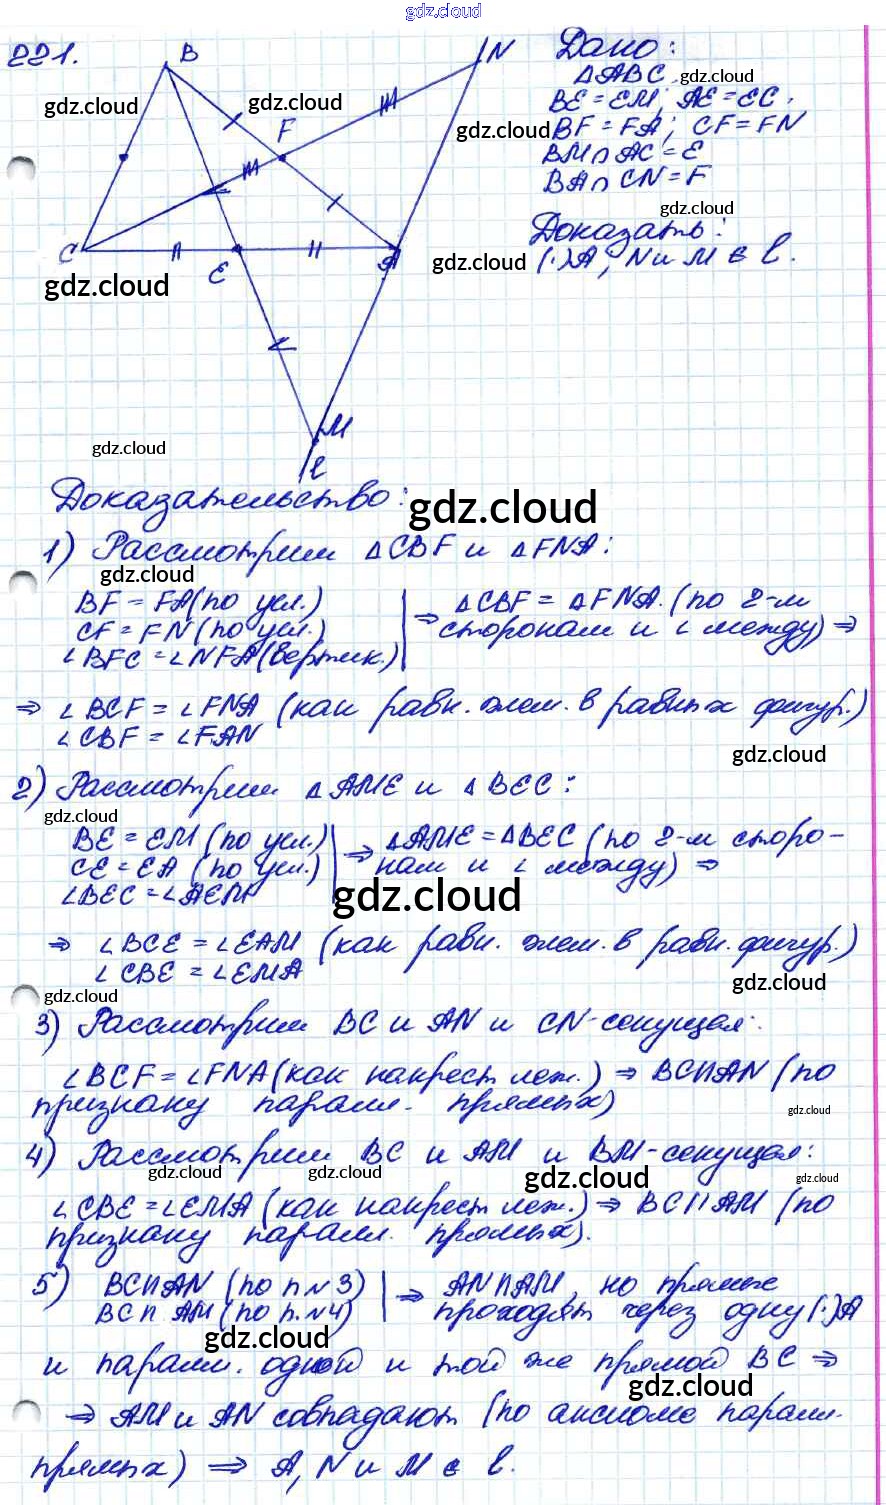 gdz.cloud
221.
B
N
F
C
E
A
M
l
Дано:
△ABC
BE = EM; AE = EC.
BF = FA; CF = FN
BM ∩ AC = E
BA ∩ CN = F
Доказать:
(·)A, N и M ∈ l.
gdz.cloud
gdz.cloud
gdz.cloud
gdz.cloud
gdz.cloud
gdz.cloud
gdz.cloud
gdz.cloud
Доказательство:
gdz.cloud
1) Рассмотрим △CBF и △FNA:
gdz.cloud
BF = FA (по усл.)
CF = FN (по усл.)
∠BFC = ∠NFA (вертик.)
⇒ △CBF = △FNA. (по 2-м
сторонам и ∠ между) ⇒
⇒ ∠BCF = ∠FNA (как равн. элем. в равных фигур.)
∠CBF = ∠FAN
gdz.cloud
2) Рассмотрим △AME и △BEC:
gdz.cloud
BE = EM (по усл.)
CE = EA (по усл.)
∠BEC = ∠AEM
⇒ △AME = △BEC (по 2-м сторо-
нам и ∠ между) ⇒
gdz.cloud
⇒ ∠BCE = ∠EAM (как равн. элем. в равн. фигур.)
∠CBE = ∠EMA
gdz.cloud
gdz.cloud
3) Рассмотрим BC и AN и CN-секущая:
∠BCF = ∠FNA (как накрест леж.) ⇒ BC II AN (по
признаку паралл. прямых)
gdz.cloud
4) Рассмотрим BC и AM и BM-секущая:
gdz.cloud
gdz.cloud
gdz.cloud
gdz.cloud
∠CBE = ∠EMA (как накрест леж.) ⇒ BC II AM (по
признаку паралл. прямых).
5) BC II AN (по п N 3)
BC II AM (по п. N 4)
⇒ AN II AM, но прямые
проходят через одну (·)A
gdz.cloud
и паралл. одной и той же прямой BC ⇒
gdz.cloud
⇒ AM и AN совпадают (по аксиоме паралл.
прямых) ⇒ A, N и M ∈ l.